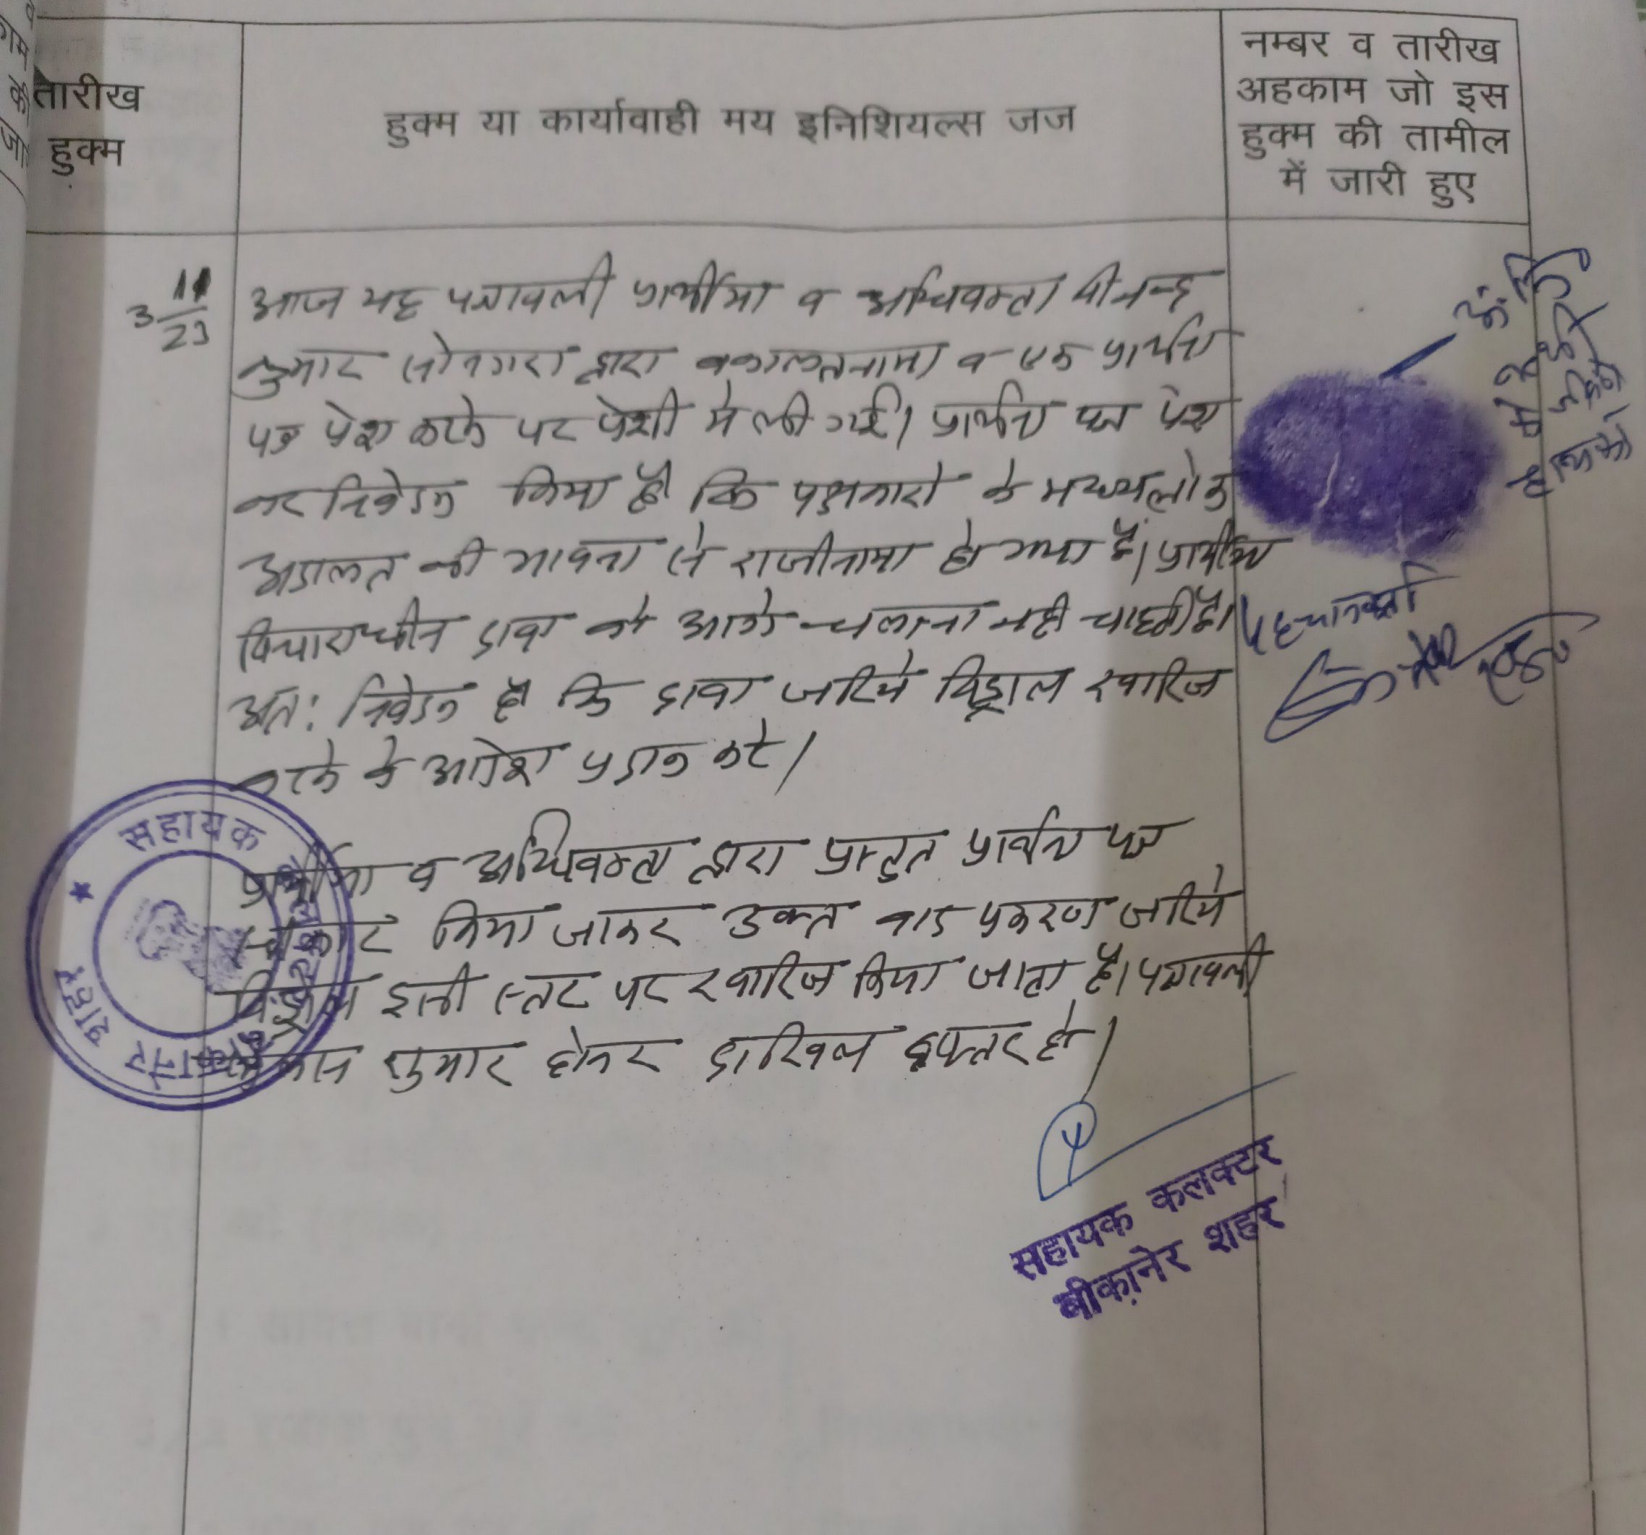 तारीख
हुक्म
हुक्म या कार्यावाही मय इनिशियल्स जज
नम्बर व तारीख
अहकाम जो इस
हुक्म की तामील
में जारी हुए
3 11/23
आज यह पत्रावली प्रार्थीया व अधिवक्ता
कुमार द्वारा वकालतनामा व एक प्रार्थना
पत्र पेश करके पर पेशी मे ली गई। प्रार्थना पत्र पेश
कर निवेदन किया है कि पक्षकारो के मध्य लोक
अदालत की भावना से राजीनामा हो गया है। प्रार्थीया
विचाराधीन दावा को आगे चलाना नही चाहती है।
अतः निवेदन है कि दावा जरिये विड्राल खारिज
करके के आदेश प्रदान करे।
प्रार्थीया व अधिवक्ता द्वारा प्रस्तुत प्रार्थना पत्र
स्वीकार किया जाकर उक्त वाद प्रकरण जरिये
विड्राल इसी स्तर पर खारिज किया जाता है। पत्रावली
शुमार होकर दाखिल दफ्तर हो।
पहचानकर्ता
सहायक कलक्टर
बीकानेर शहर
सहायक कलक्टर
बीकानेर शहर